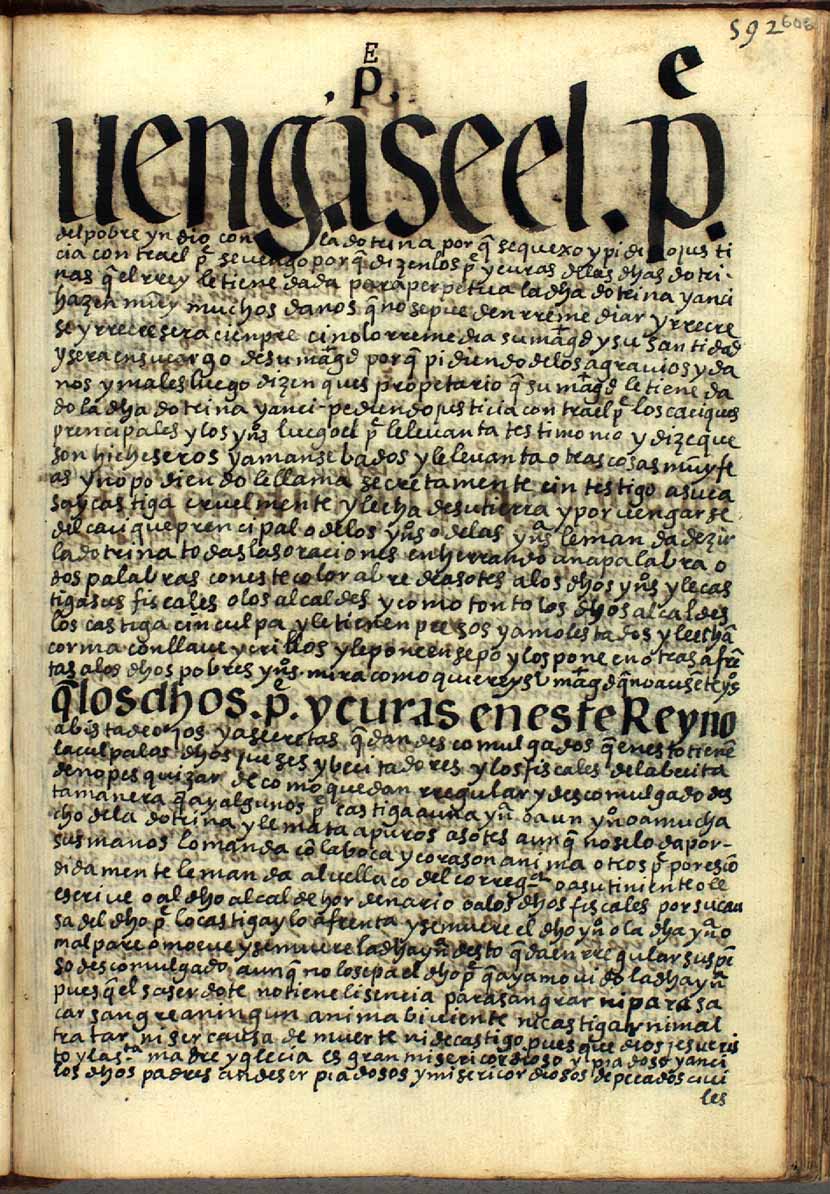 592 608
E
.p.
uengase el. pe.
del pobre yndio con la dotrina porq̃ se quexo y pidio jus ti
cia contra el pe se vengo por q̃ dizen los pe y curas de las dhas dotri-
nas q̃ el rrey le tiene dada para perpetua la dha dotrina y anci
hazen muy muchos danos q̃ no se pueden rreme diar y rrecre
se y rrecresera cienpre ci no lo rremedia su magd y su santidad
y sera en su cargo de su magd porq̃ pidiendo de los agravios y da
nos y males luego dizen ques propetario q̃ su magd le tiene da
do la dha dotrina y anci pediendo justicia contra el pe los caciques
prencipales y los yños luego el pe le levanta testimonio y dize que
son hicheseros y amansebados y le levanta otras cosas muy fe
as y no podiendo le llama secretamente cin testigo a su ca
sa y castiga cruelmente y lecha de su tierra y por vengarse
del cacique prencipal o de los yños o de las yñas le manda dezir
la dotrina todas las oraciones en herrando una palabra o
dos palabras con este color abre de asotes a los dhos yños y le cas
tiga sus fiscales o los alcaldes y como tonto los dhos alcaldes
los castiga cin culpa y le tienen presos y amolestados y le echã
corma con llave y crillos y le pone en sepo y los pone en otras afrẽ
tas a los dhos pobres yños. mira como quiere y su magd q̃ no ausente yños
q̃ los dhos. pe. y curas en este Reyno
a bista de ojos y a secretas q̃ dan descomulgados q̃ en esto tiene
la culpa los dhos jueses y becitadores y los fiscales de la becita
de no pesquizar de como quedan rregular y descomulgado des
ta manera q̃ ay algunos pe castiga a una yña o a un yño a mucha
cho de la dotrina y le mata a puros asotes aunq̃ no se lo da por-
sus manos lo manda cõ la boca y corason anima otros pe por escõ
didamente le manda al vellaco del corregor o a su tiniente o le
escrive o al dho alcalde hordenario o a los dhos fiscales por su cau
sa del dho pe lo castiga y lo afrenta y se muere el dho yño o la dha yña o
malpare o mueve y se muere la dha yña desto q̃ da en rregular suspẽ
so descomulgado aunq̃ no lo sepa el dho pe q̃ aya movido la dha yña
pues q̃ el saserdote no tiene lisencia para sangrar ni para sa
car sangre a ningun anima biviente ni castigar ni mal
tratar ni ser causa de muerte ni de castigo pues que dios jesucris
to y la sta madre yglecia es gran misericordioso y piadoso y anci
los dhos padres an de ser piadosos y misericordiosos de pecados civi
les